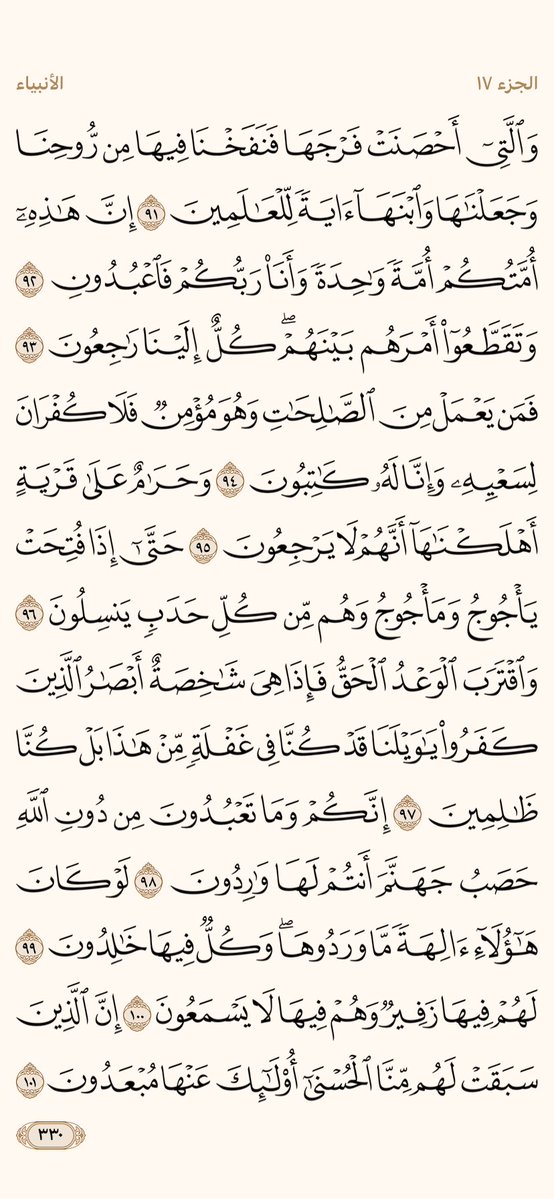 الجزء ١٧
الأنبياء
وَٱلَّتِىٓ أَحْصَنَتْ فَرْجَهَا فَنَفَخْنَا فِيهَا مِن رُّوحِنَا
وَجَعَلْنَٰهَا وَٱبْنَهَآ ءَايَةً لِّلْعَٰلَمِينَ ٩١ إِنَّ هَٰذِهِۦٓ
أُمَّتُكُمْ أُمَّةً وَٰحِدَةً وَأَنَا۠ رَبُّكُمْ فَٱعْبُدُونِ ٩٢
وَتَقَطَّعُوٓا۟ أَمْرَهُم بَيْنَهُمْ ۖ كُلٌّ إِلَيْنَا رَٰجِعُونَ ٩٣
فَمَن يَعْمَلْ مِنَ ٱلصَّٰلِحَٰتِ وَهُوَ مُؤْمِنٌ فَلَا كُفْرَانَ
لِسَعْيِهِۦ وَإِنَّا لَهُۥ كَٰتِبُونَ ٩٤ وَحَرَٰمٌ عَلَىٰ قَرْيَةٍ
أَهْلَكْنَٰهَآ أَنَّهُمْ لَا يَرْجِعُونَ ٩٥ حَتَّىٰٓ إِذَا فُتِحَتْ
يَأْجُوجُ وَمَأْجُوجُ وَهُم مِّن كُلِّ حَدَبٍ يَنسِلُونَ ٩٦
وَٱقْتَرَبَ ٱلْوَعْدُ ٱلْحَقُّ فَإِذَا هِىَ شَٰخِصَةٌ أَبْصَٰرُ ٱلَّذِينَ
كَفَرُوا۟ يَٰوَيْلَنَا قَدْ كُنَّا فِى غَفْلَةٍ مِّنْ هَٰذَا بَلْ كُنَّا
ظَٰلِمِينَ ٩٧ إِنَّكُمْ وَمَا تَعْبُدُونَ مِن دُونِ ٱللَّهِ
حَصَبُ جَهَنَّمَ أَنتُمْ لَهَا وَٰرِدُونَ ٩٨ لَوْ كَانَ
هَٰٓؤُلَآءِ ءَالِهَةً مَّا وَرَدُوهَا ۖ وَكُلٌّ فِيهَا خَٰلِدُونَ ٩٩
لَهُمْ فِيهَا زَفِيرٌ وَهُمْ فِيهَا لَا يَسْمَعُونَ ١٠٠ إِنَّ ٱلَّذِينَ
سَبَقَتْ لَهُم مِّنَّا ٱلْحُسْنَىٰٓ أُو۟لَٰٓئِكَ عَنْهَا مُبْعَدُونَ ١٠١
٣٣٠